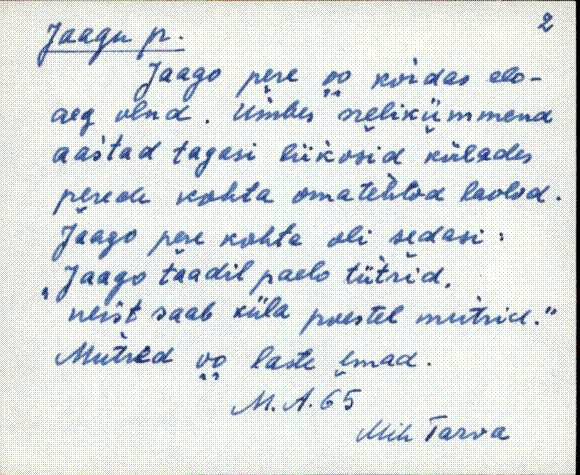 2
Jaagu pr.
Jaago pere oo kõrdas elo-
aeg olnd. Umbes nelikümmend
aastad tagasi liikosid külades
perede kohta omatehtod laolod.
Jaago pere kohta oli sedasi:
„Jaago taadil paelo tütrid,
neist saab küla poestel mutrid.“
Mutred oo laste emad.
M. A. 65
Mih Tarva